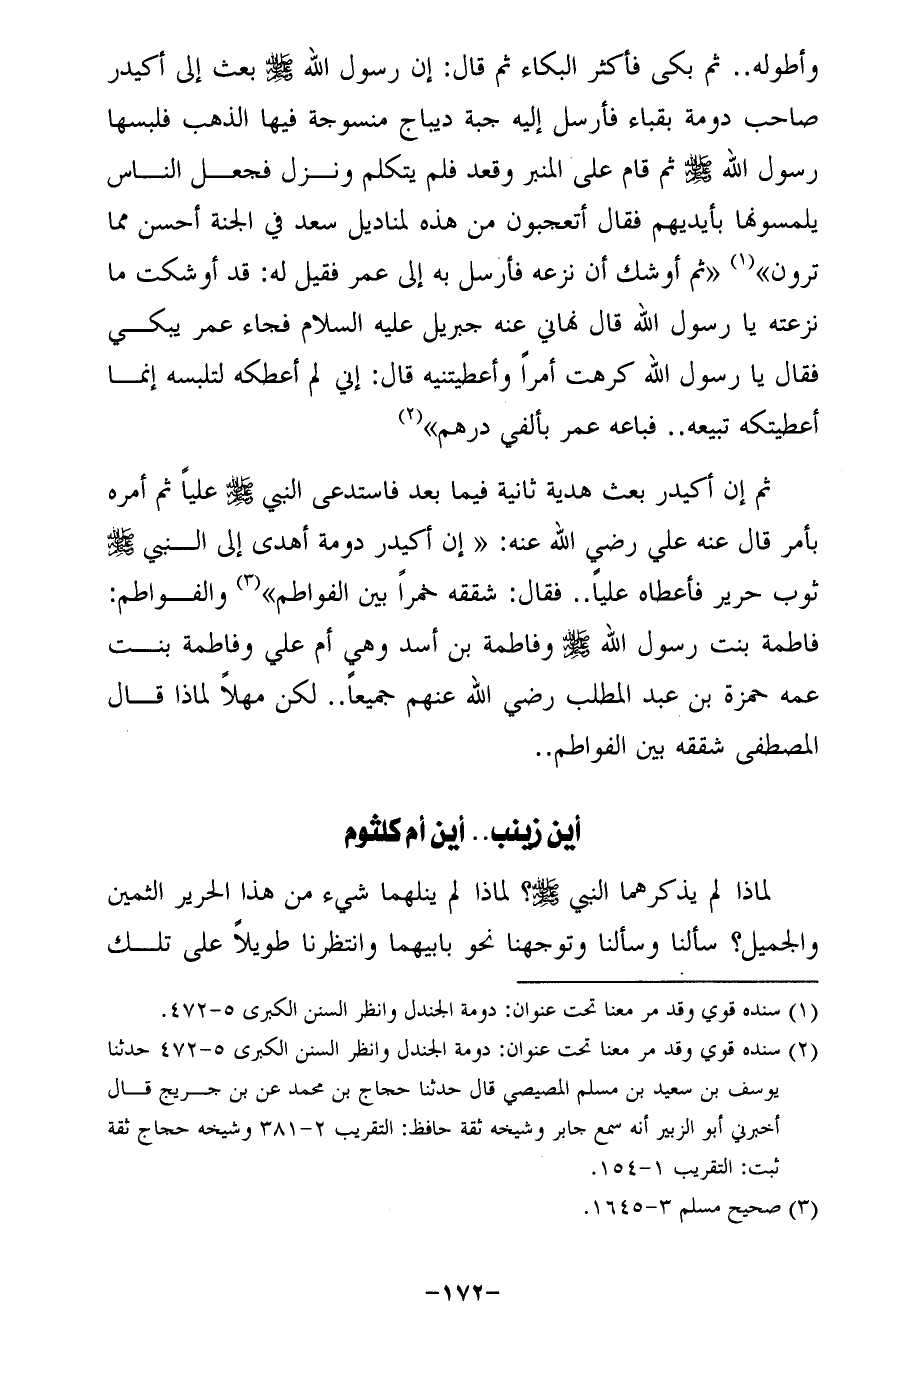 وأطوله.. ثم بكى فأكثر البكاء ثم قال: إن رسول الله ﷺ بعث إلى أكيدر
صاحب دومة بقباء فأرسل إليه جبة ديباج منسوجة فيها الذهب فلبسها
رسول الله ﷺ ثم قام على المنبر وقعد فلم يتكلم ونـــزل فجعـــل النـــاس
يلمسونها بأيديهم فقال أتعجبون من هذه لمناديل سعد في الجنة أحسن مما
ترون»(١) «ثم أوشك أن نزعه فأرسل به إلى عمر فقيل له: قد أوشكت ما
نزعته يا رسول الله قال نهاني عنه جبريل عليه السلام فجاء عمر يبكـــي
فقال يا رسول الله كرهت أمراً وأعطيتنيه قال: إني لم أعطكه لتلبسه إنمـــا
أعطيتكه تبيعه.. فباعه عمر بألفي درهم»(٢)
ثم إن أكيدر بعث هدية ثانية فيما بعد فاستدعى النبي ﷺ علياً ثم أمره
بأمر قال عنه علي رضي الله عنه: « إن أكيدر دومة أهدى إلى الـــنبي ﷺ
ثوب حرير فأعطاه علياً.. فقال: شققه خمراً بين الفواطم»(٣) والفـــواطم:
فاطمة بنت رسول الله ﷺ وفاطمة بن أسد وهي أم علي وفاطمة بنـــت
عمه حمزة بن عبد المطلب رضي الله عنهم جميعاً.. لكن مهلاً لماذا قـــال
المصطفى شققه بين الفواطم..
أين زينب.. أين أم كلثوم
لماذا لم يذكرهما النبي ﷺ؟ لماذا لم ينلهما شيء من هذا الحرير الثمين
والجميل؟ سألنا وسألنا وتوجهنا نحو بابيهما وانتظرنا طويلاً على تلـــك
(١) سنده قوي وقد مر معنا تحت عنوان: دومة الجندل وانظر السنن الكبرى ٥-٤٧٢.
(٢) سنده قوي وقد مر معنا تحت عنوان: دومة الجندل وانظر السنن الكبرى ٥-٤٧٢ حدثنا
يوسف بن سعيد بن مسلم المصيصي قال حدثنا حجاج بن محمد عن بن جـــريج قـــال
أخبرني أبو الزبير أنه سمع جابر وشيخه ثقة حافظ: التقريب ٢-٣٨١ وشيخه حجاج ثقة
ثبت: التقريب ١-١٥٤.
(٣) صحيح مسلم ٣-١٦٤٥.
-١٧٢-